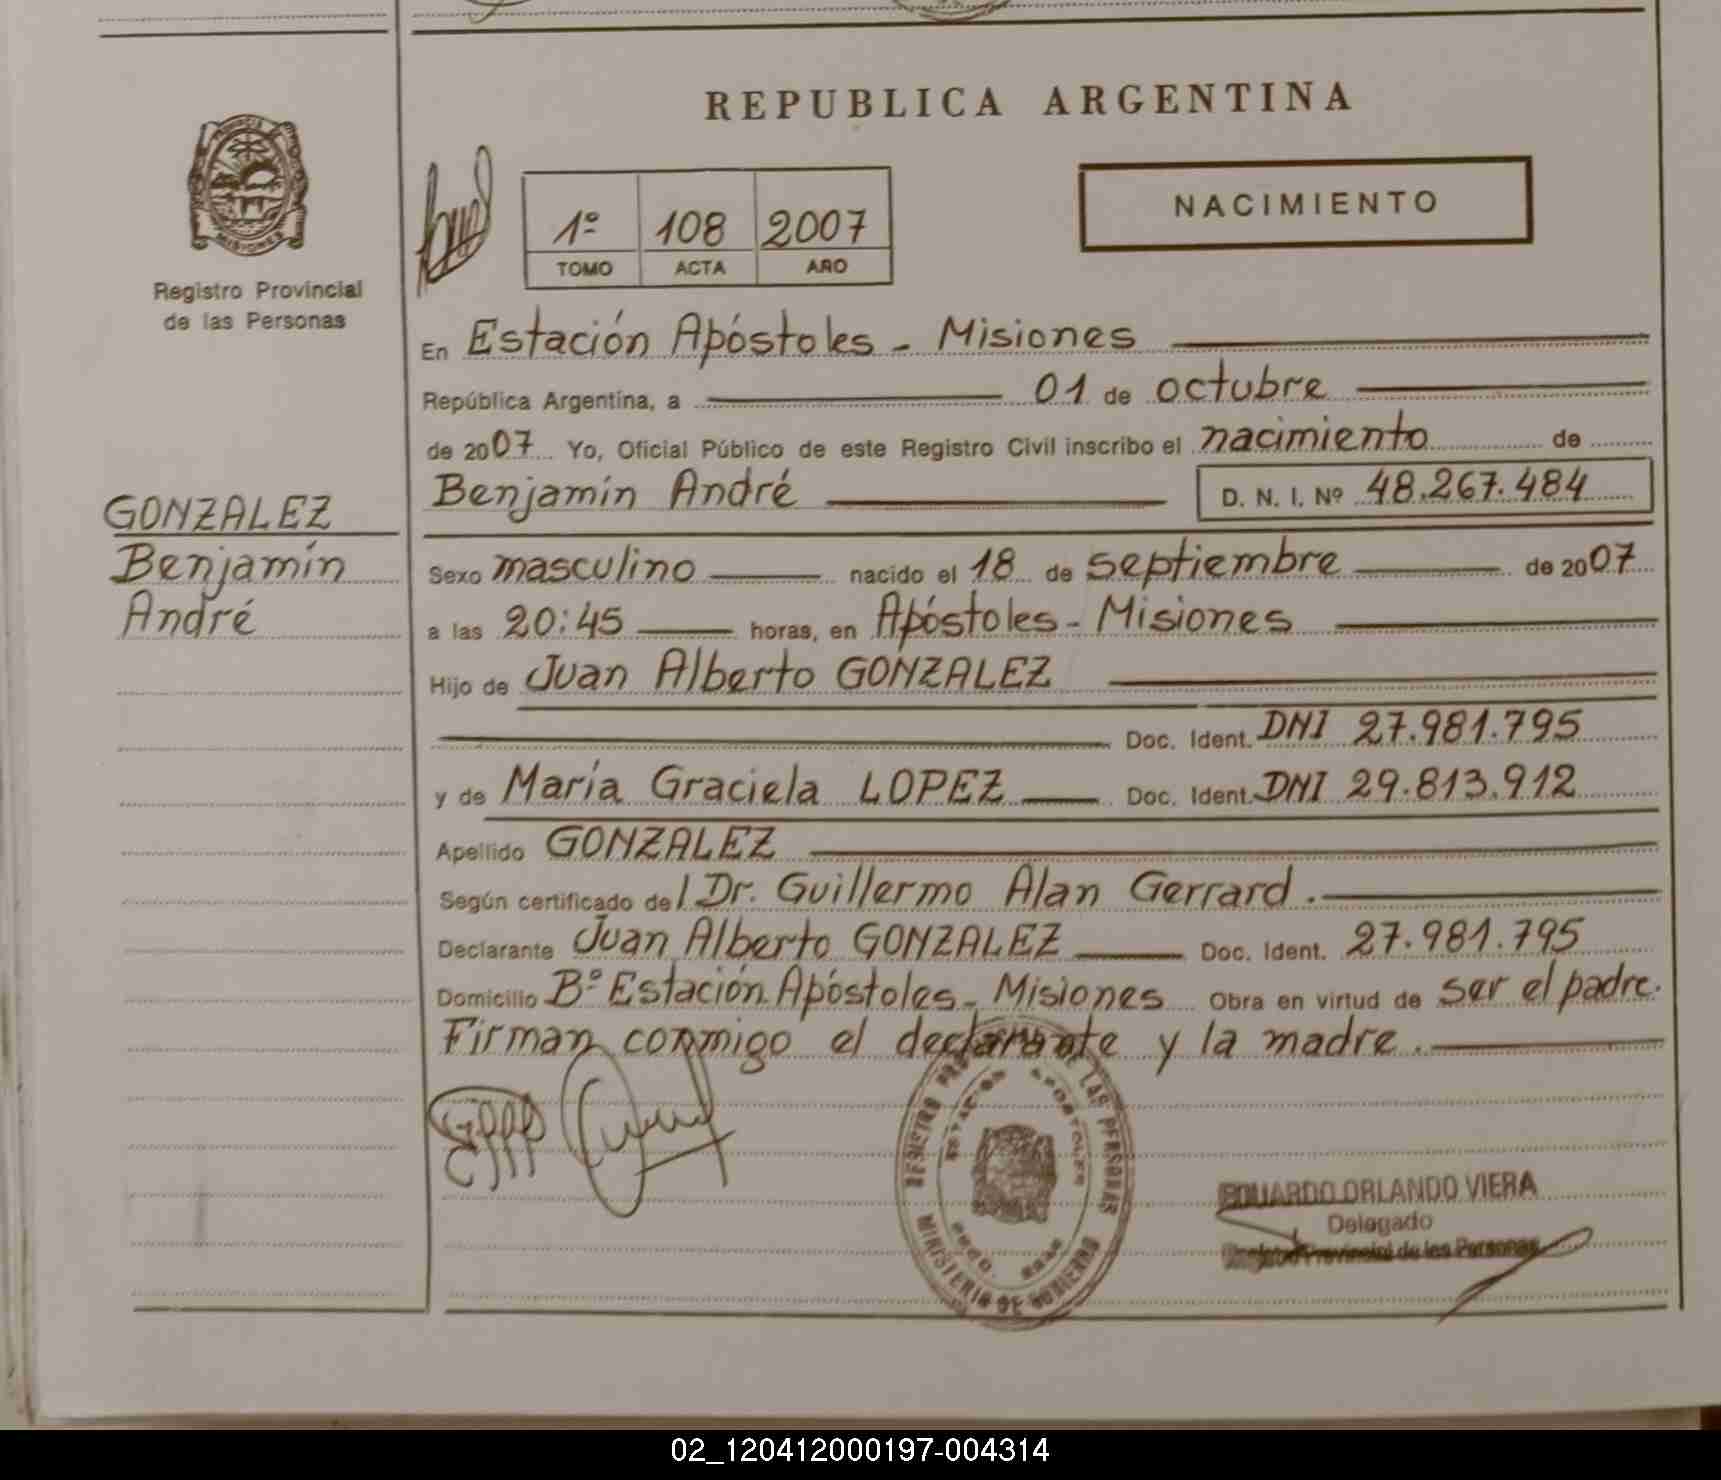 REPUBLICA ARGENTINA
PROVINCIA DE
MISIONES
Registro Provincial
de las Personas
1º 108 2007
TOMO ACTA AÑO
NACIMIENTO
En Estación Apóstoles - Misiones
República Argentina, a 01 de octubre
de 2007 Yo, Oficial Público de este Registro Civil inscribo el nacimiento de
Benjamín André D. N. I. Nº 48.267.484
GONZALEZ
Benjamín
André
Sexo masculino nacido el 18 de septiembre de 2007
a las 20:45 horas, en Apóstoles - Misiones
Hijo de Juan Alberto GONZALEZ
Doc. Ident. DNI 27.981.795
y de María Graciela LOPEZ Doc. Ident. DNI 29.813.912
Apellido GONZALEZ
Según certificado del Dr. Guillermo Alan Gerrard.
Declarante Juan Alberto GONZALEZ Doc. Ident. 27.981.795
Domicilio Bº Estación Apóstoles - Misiones Obra en virtud de ser el padre.
Firman conmigo el declarante y la madre.
REGISTRO DE LAS PERSONAS
ESTACION APOSTOLES
MINISTERIO DE GOBIERNO
EDUARDO ORLANDO VIERA
Delegado
Registro Provincial de las Personas
02_120412000197-004314